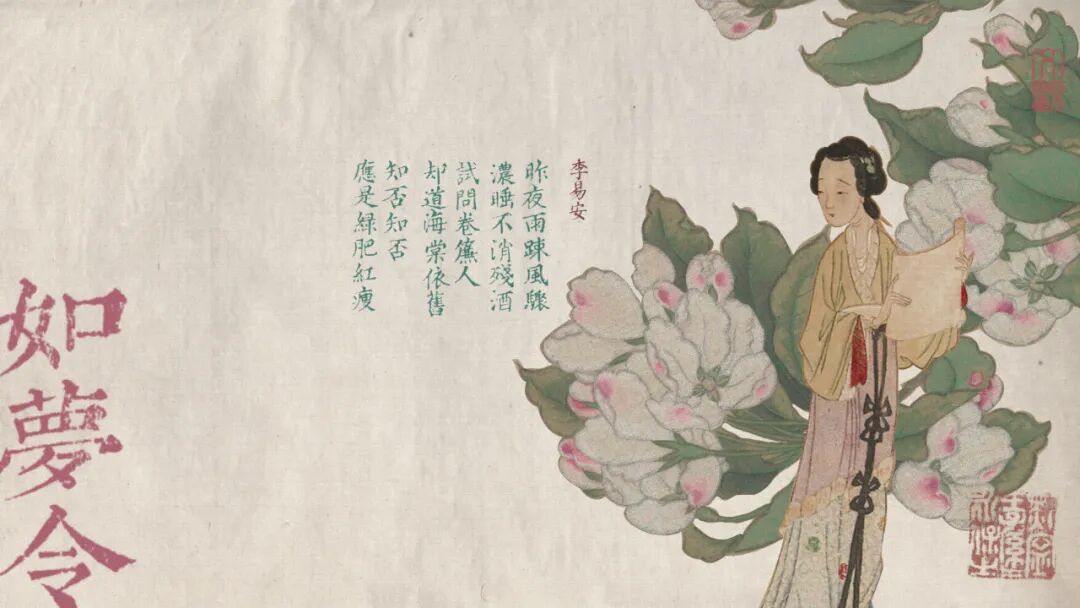 李易安
昨夜雨踈風驟
濃睡不消殘酒
試問卷簾人
却道海棠依舊
知否知否
應是綠肥紅瘦
如夢令